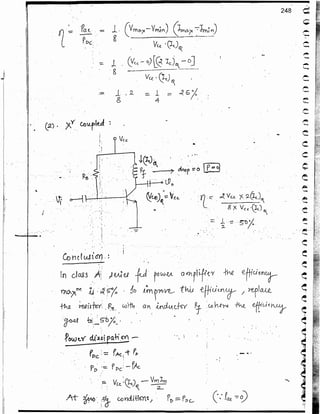 248
η = Pac / PDC = 1/8 (Vmax - Vmin) (Imax - Imin) / Vcc · (Ic)Q
= 1/8 (Vcc - 0)[(2 Ic)Q - 0] / Vcc · (Ic)Q
= 1/8 · 2 = 1/4 = 25%
(2). Xr coupled :
Vcc
↓(Ic)Q
RB
drop = 0 P=0
(VCE)Q = Vcc
Vi
η = 2 Vcc × 2(Ic)Q / 8 × Vcc · (Ic)Q
= 1/2 = 50%
Conclusion :
In class A series fed power amplifier the efficiency
max is 25%. So improve this efficiency, replace
the resistor Rc with an inductor where the efficiency
goal to 50%.
Power dissipation
PDC = PAC + PD
PD = PDC - PAC
= Vcc · (Ic)Q - Vm Im / 2
At zero sig conditions, PD = PDC (∵ Pac = 0)